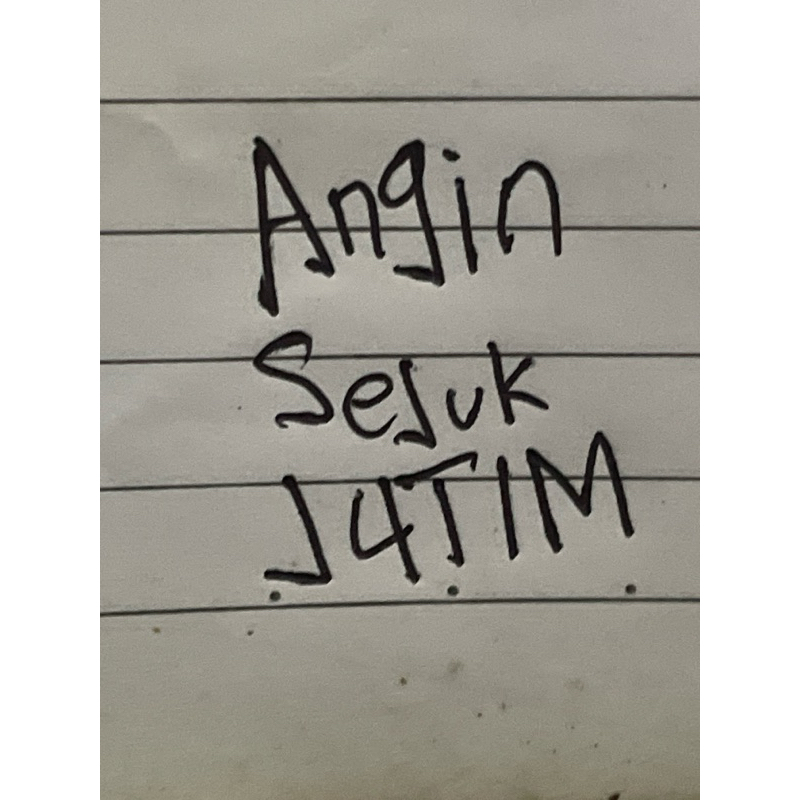 Angin
Sejuk
J4TIM